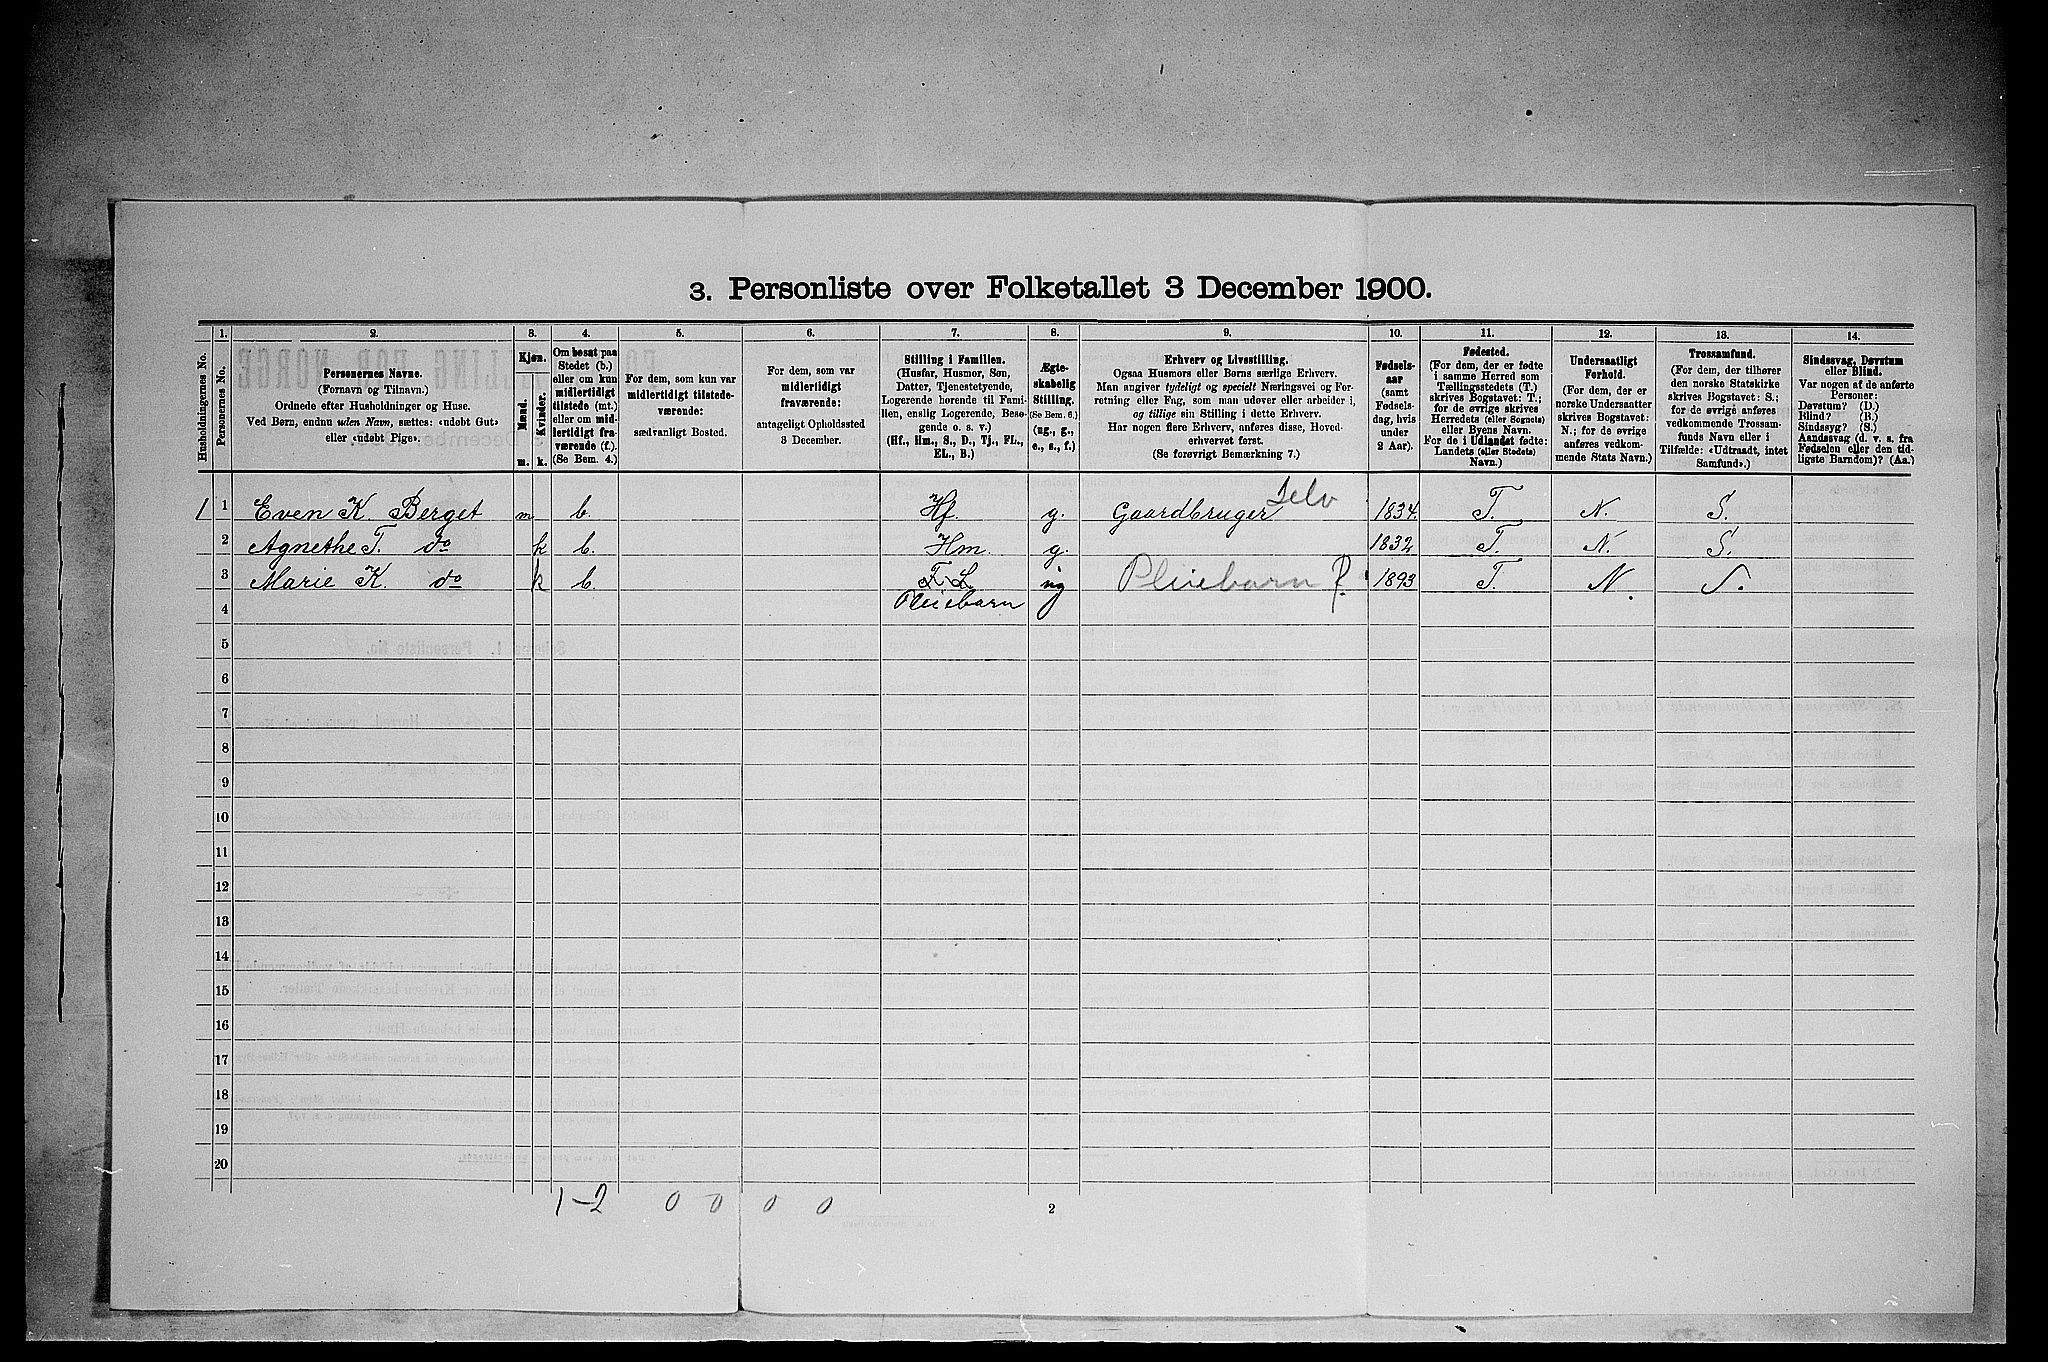 3. Personliste over Folketallet 3 December 1900.
Husholdningernes No.
1.
Personernes No.
2.
Personernes Navne.
(Fornavn og Tilnavn.)
Ordnede efter Husholdninger og Huse.
Ved Børn, endnu uden Navn, sættes: «udøbt Gut»
eller «udøbt Pige».
3.
Kjøn.
Mænd.
Kvinder.
m. k.
4.
Om bosat paa
Stedet (b.)
eller om kun
midlertidigt
tilstede (mt.)
eller om mid-
lertidigt fra-
værende (f.).
(Se Bem. 4.)
5.
For dem, som kun var
midlertidigt tilstede-
værende:
sædvanligt Bosted.
6.
For dem, som var
midlertidigt
fraværende:
antageligt Opholdssted
3 December.
7.
Stilling i Familien.
(Husfar, Husmor, Søn,
Datter, Tjenestetyende,
Logerende hørende til Fami-
lien, enslig Logerende, Besø-
gende o. s. v.)
(Hf., Hm., S., D., Tj., FL.,
EL., B.)
8.
Ægte-
skabelig
Stilling.
(Se Bem. 6.)
(ug., g.,
e., s., f.)
9.
Erhverv og Livsstilling.
Ogsaa Husmors eller Børns særlige Erhverv.
Man angiver tydeligt og specielt Næringsvei og For-
retning eller Fag, som man udøver eller arbeider i,
og tillige sin Stilling i dette Erhverv.
Har nogen flere Erhverv, anføres disse, Hoved-
erhvervet først.
(Se forøvrigt Bemærkning 7.)
10.
Fødsels-
aar
(samt
Fødsels-
dag, hvis
under
2 Aar).
11.
Fødested.
(For dem, der er fødte
i samme Herred som
Tællingsstedets (T.)
skrives Bogstavet: T.;
for de øvrige skrives
Herredets (eller Sognets)
eller Byens Navn.
For de i Udlandet fødte:
Landets (eller Stedets)
Navn.)
12.
Undersaatligt
Forhold.
(For dem, der er
norske Undersaatter
skrives Bogstavet:
N.; for de øvrige
anføres vedkom-
mende Stats Navn.)
13.
Trossamfund.
(For dem, der tilhører
den norske Statskirke
skrives Bogstavet: S.;
for de øvrige anføres
vedkommende Trossam-
funds Navn eller i
Tilfælde: «Udtraadt, intet
Samfund».)
14.
Sindssvag, Døvstum
eller Blind.
Var nogen af de anførte
Personer:
Døvstum? (D.)
Blind? (B.)
Sindssyg? (S.)
Aandssvag (d. v. s. fra
Fødselen eller den tid-
ligste Barndom)? (Aa.)
1 1 Even K. Berget m b. Hf. g. Gaardbruger Selv 1834. T. N. S.
2 Agnethe T. do k b. Hm. g. 1832 T. N. S.
3 Marie K. do k b. F.L. ug Pleiebarn ? 1893 T. N. S.
4 Pleiebarn
5
6
7
8
9
10
11
12
13
14
15
16
17
18
19
20
1-2 0 0 0 0
2